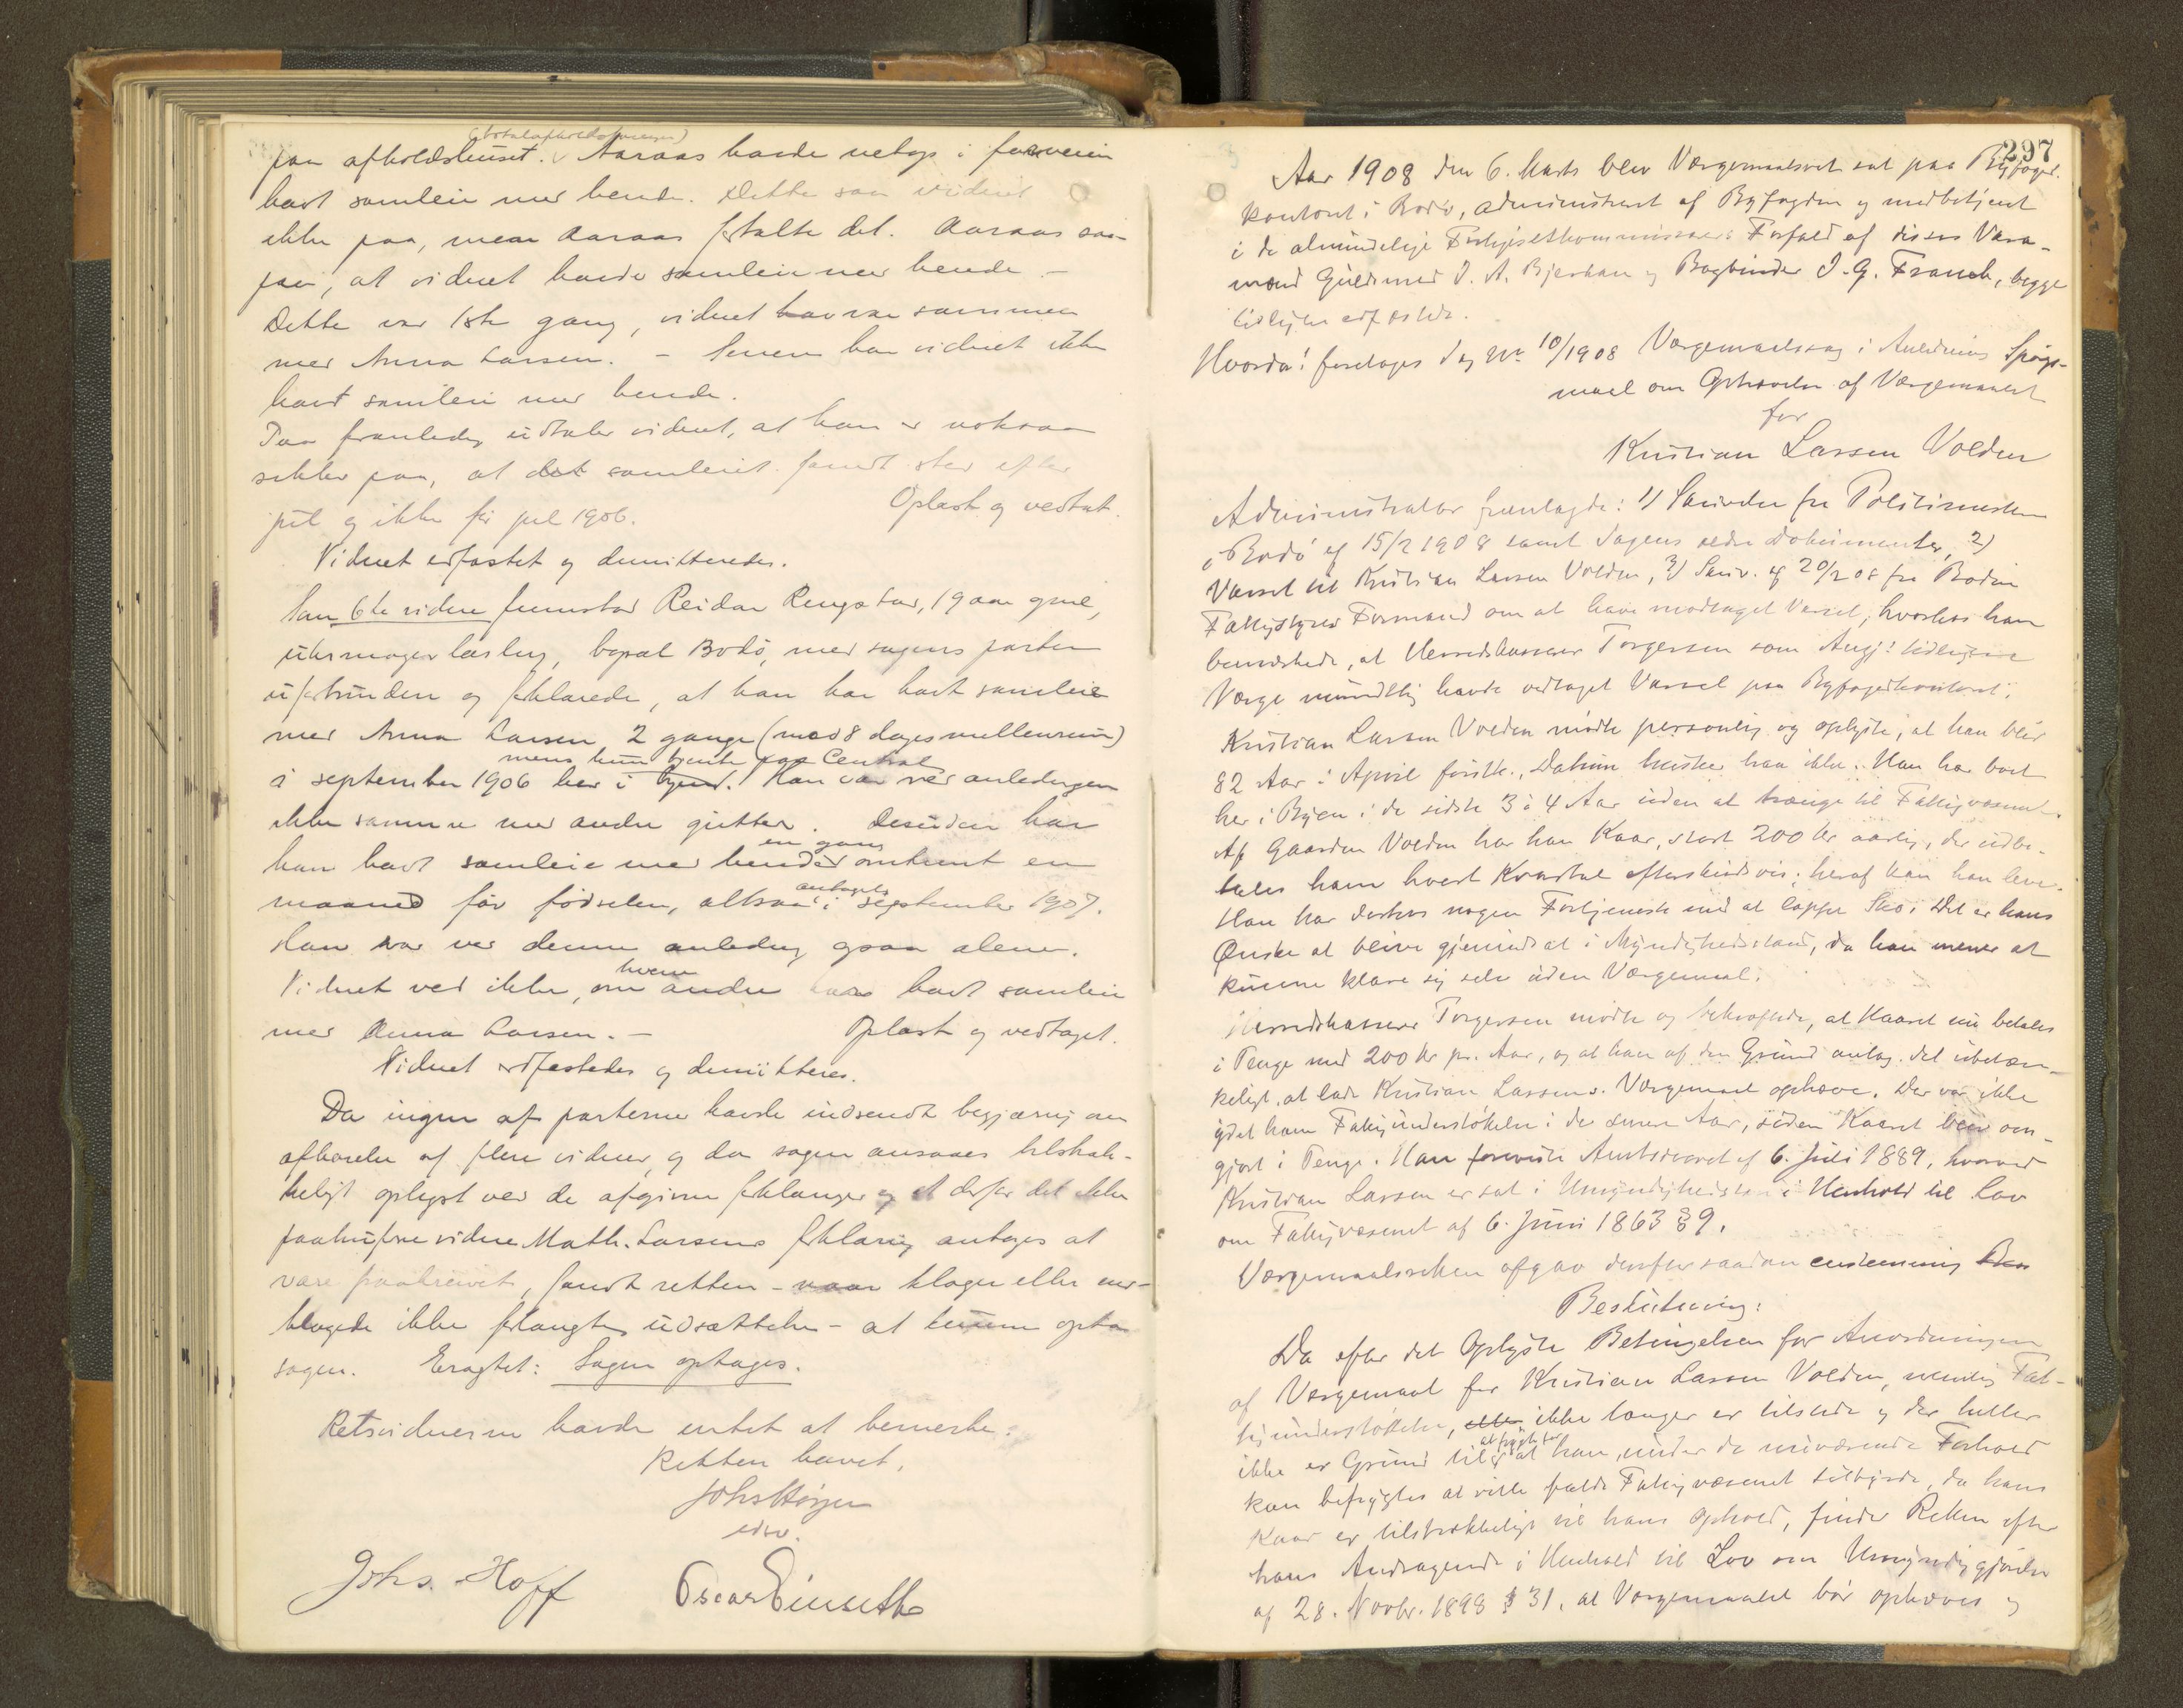 (totalafholdsforeningen)
paa afholdshuset. Aaraas havde netop i forveien
havt samleie med hende. Dette saa vidnet
ikke paa, men Aaraas ftalte det. Aaraas saa
paa, at vidnet havde samleie med hende. –
Dette var 1ste gang, vidnet var sammen
med Anna Larsen. – Senere har vidnet ikke
havt samleie med hende.
Paa foranledn. udtaler vidnet, at han er noksaa
sikker paa, at det samleiet fandt sted efter
jul og ikke før jul 1906. Oplæst og vedtat.
Vidnet edfæstet og demitteredes.
Som 6te vidne fremstod Reidar Rengstad, 19 aar gml,
uhrmagerlærling, bopæl Bodø, med sagens parter
uforbunden og fklarede, at han har havt samleie
med Anna Larsen 2 gange (med 8 dages mellemrum)
mens hun tjente paa Central
i september 1906 her i byen. Han var ved anledningen
ikke sammen med andre gutter. Desuden har
en gang
han havt samleie med hende omtrent en
antagelig
maaned før fødselen, altsaa i september 1907.
Han var ved denne anledning ogsaa alene.
hvem
Vidnet ved ikke, om andre har havt samleie
med Anna Larsen. – Oplæst og vedtaget.
Vidnet edfæstedes og demitteres.
Da ingen af parterne havde indsendt begjæring om
afhørelse af flere vidner, og da sagen ansaaes tilstræk-
keligt oplyst ved de afgivne fklaringer og at derfor det ikke
paahufne vidne Math. Larsens fklaring antages at
være paakrævet, fandt retten – naar klager eller ind-
klagede ikke forlangte udsættelse – at kunne opta
sagen. Eragtet: Sagen optages.
Retsvidnerne havde intet at bemerke.
Retten hævet.
Johs Høyer
edsv.
Johs. Hoff Oscar Einseth
297
Aar 1908 den 6. Marts blev Værgemaalsret sat paa Byfoged-
kontoret i Bodø, administreret af Byfogden og medbetjent
i de almindelige Forligelseskommissærers Forfald af disses Vara-
mænd Guldsmed J. A. Bjerkan og Bogbinder J. G. Franck, begge
tidligere edfæstede.
Hvorda: foretages Sag No 10/1908 Værgemaalssag i Anledning Spørgs-
maal om Ophævelse af Værgemaalet
for
Kristian Larsen Volden
Administrator fremlagde: 1) Skrivelse fra Politimesteren
i Bodø af 15/2 1908 samt Sagens ældre Dokumenter, 2)
Varsel til Kristian Larsen Volden, 3) Skriv. af 20/2 08 fra Bodin
Fattigstyres Formand om at have modtaget Varsel, hvorhos han
bemerkede, at Herredskasserer Torgersen som Angj: tidligere
Værge mundtlig havde vedtaget Varsel paa Byfogedkontoret.
Kristian Larsen Volden mødte personlig og oplyste, at han blir
82 Aar i April førstk., Datum husker han ikke. Han har boet
her i Byen i de sidste 3 à 4 Aar uden at trænge til Fattigvæsenet.
Af Gaarden Volden har han Kaar, stort 200 kr aarlig, der udbe-
tales ham hvert Kvartal efterskudsvis; heraf kan han leve.
Han har derhos nogen Fortjeneste med at lappe Sko. Det er hans
Ønske at blive gjenindsat i Myndighedsstand, da han mener at
kunne klare sig selv uden Værgemaal.
Herredskasserer Torgersen mødte og bekræftede, at Kaaret nu betales
i Penge med 200 kr pr. Aar, og at han af den Grund antog det ubetæn-
keligt, at lade Kristian Larsens Værgemaal ophæve. Der var ikke
ydet ham Fattigunderstøttelse i de senere Aar, siden Kaaret blev om-
gjort i Penge. Han foreviste Amtsdecret af 6. Juli 1889, hvorved
Kristian Larsen er sat i Umyndighedsst. i Henhold til Lov
om Fattigvæsenet af 6. Juni 1863 § 9.
Værgemaalsretten afgav derefter saadan enstemmig
Beslutning:
Da efter det Oplyste Betingelsen for Anordningen
af Værgemaal for Kristian Larsen Volden, nemlig Fat-
tigunderstøttelse, ikke længer er tilstede og der heller
at frygte for
ikke er Grund til at han under de nuværende Forhold
kan befrygtes at ville falde Fattigvæsenet til byrde, da hans
Kaar er tilstrækkeligt til hans Ophold, finder Retten efter
hans Andragende i Henhold til Lov om Umyndiggjørelse
af 28. Novbr. 1898 § 31, at Værgemaalet bør ophæves og